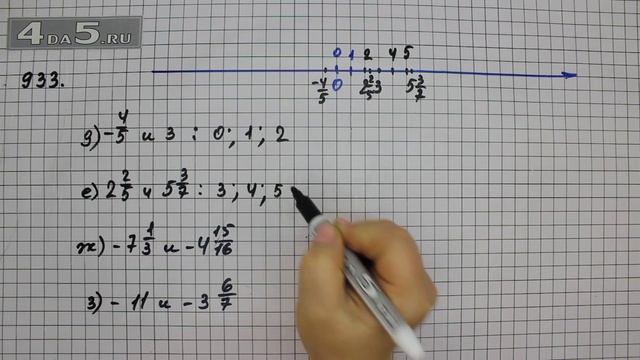 4DA5.RU
933.
0 1 2 4 5
-4/5 0 2 2/5 3 5 3/7
д) -4/5 и 3 : 0; 1; 2
е) 2 2/5 и 5 3/7 : 3; 4; 5
ж) -7 1/3 и -4 15/16
з) -11 и -3 6/7